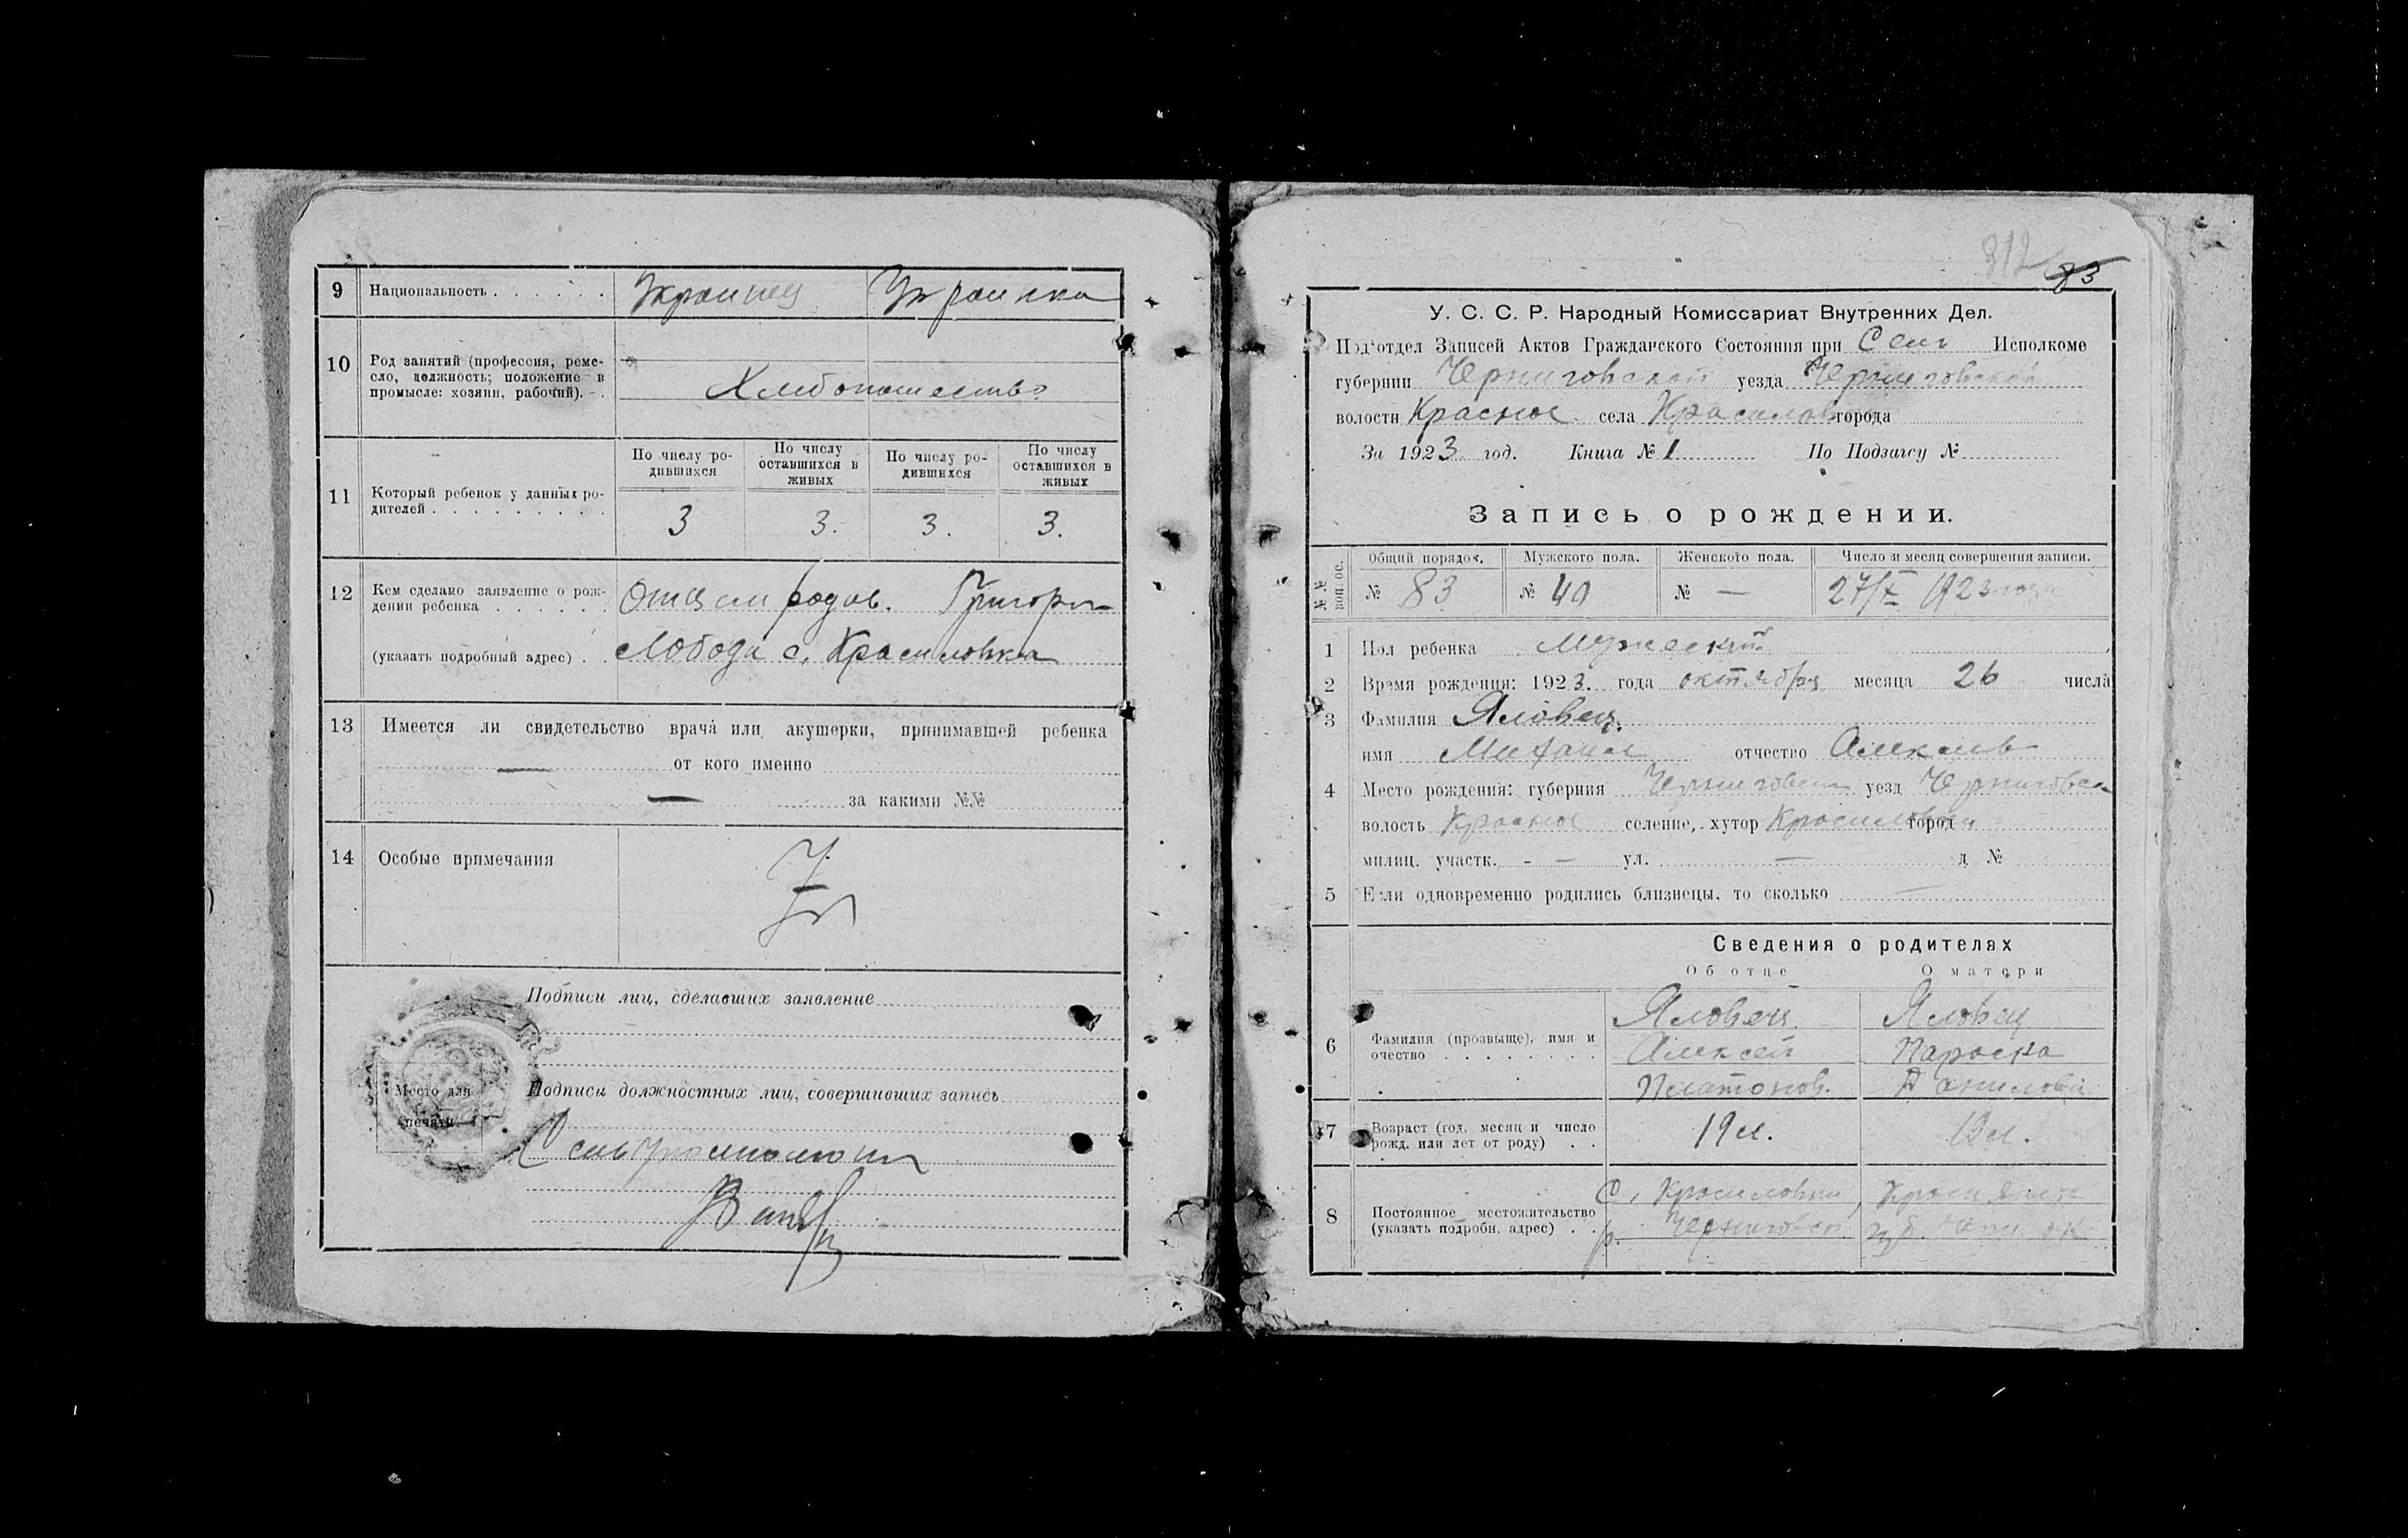 9 Национальность Украинец Украинка
10 Род занятий (профессия, ремесло, должность; положение в промысле: хозяин, рабочий). Хлебопашество
11 Который ребенок у данных родителей
По числу родившихся По числу оставшихся в живых По числу родившихся По числу оставшихся в живых
3 3. 3. 3.
12 Кем сделано заявление о рождении ребенка Отцем родов. Григори
(указать подробный адрес) Лобода с. Красиловка
13 Имеется ли свидетельство врача или акушерки, принимавшей ребенка
— от кого именно
— за какими №№
14 Особые примечания
Подписи лиц, сделавших заявление
Место для печати
Подписи должностных лиц, совершивших запись
812 83
У. С. С. Р. Народный Комиссариат Внутренних Дел.
Под'отдел Записей Актов Гражданского Состояния при Сель Исполкоме
губернии Черниговской уезда Черниговской
волости Красное села Красиловк города
За 1923 год. Книга № 1 По Подзагсу №
Запись о рождении.
№№ воп. ос.
Общий порядок. Мужского пола. Женского пола. Число и месяц совершения записи.
№ 83 № 40 № — 27/X 1923 года
1 Пол ребенка Мужеский
2 Время рождения: 1923. года октября месяца 26 числа
3 Фамилия Яловец.
имя Михаил отчество Алексеев
4 Место рождения: губерния Черниговск уезд Черниговск
волость Красное селение, хутор Красиловка город
милиц. участк. - — ул. — д №
5 Если одновременно родились близнецы, то сколько —
Сведения о родителях
Об отце О матери
6 Фамилия (прозвыще), имя и очество
Яловец Яловец
Алексей Параска
Платонов. Данилова
7 Возраст (год, месяц и число рожд. или лет от роду) 19 л. 19 л.
8 Постоянное местожительство (указать подробн. адрес)
С. Красиловка,
Черниговск